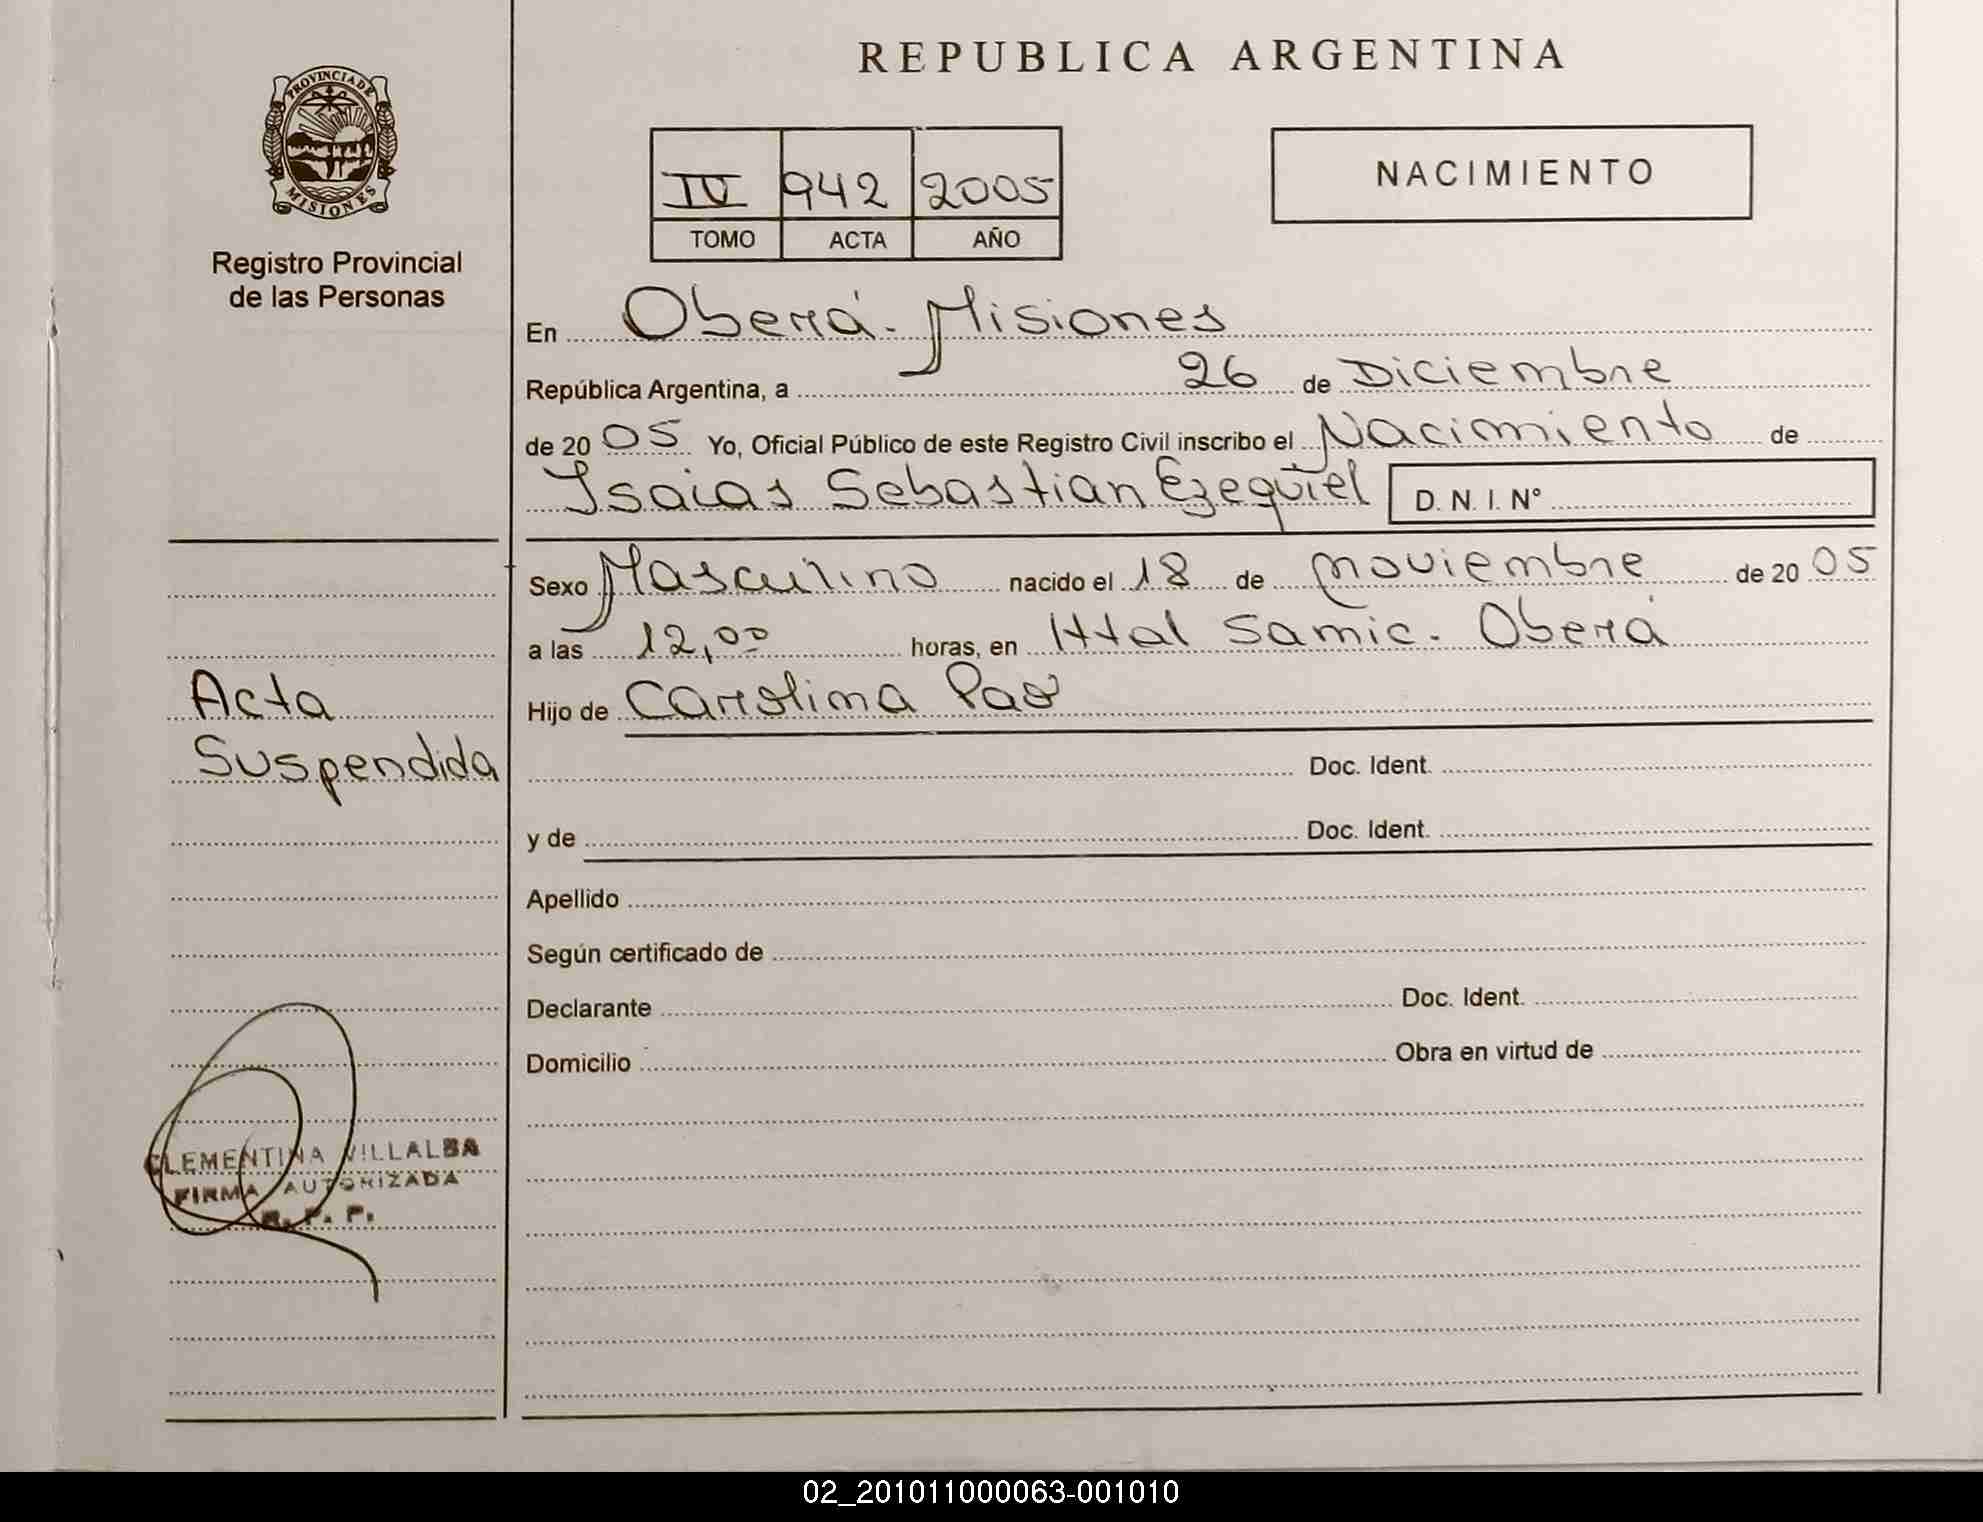 REPUBLICA ARGENTINA
PROVINCIA DE
MISIONES
Registro Provincial
de las Personas
IV 942 2005
TOMO ACTA AÑO
NACIMIENTO
En Oberá - Misiones
República Argentina, a 26 de Diciembre
de 20 05 Yo, Oficial Público de este Registro Civil inscribo el Nacimiento de
Isaias Sebastian Ezequiel D. N. I. N°
Sexo Masculino nacido el 18 de noviembre de 20 05
a las 12,00 horas, en Httal Samic. Oberá
Hijo de Carolina
Doc. Ident.
y de Doc. Ident.
Apellido
Según certificado de
Declarante Doc. Ident.
Domicilio Obra en virtud de
Acta
Suspendida
CLEMENTINA VILLALBA
FIRMA AUTORIZADA
R. P. P.
02_201011000063-001010